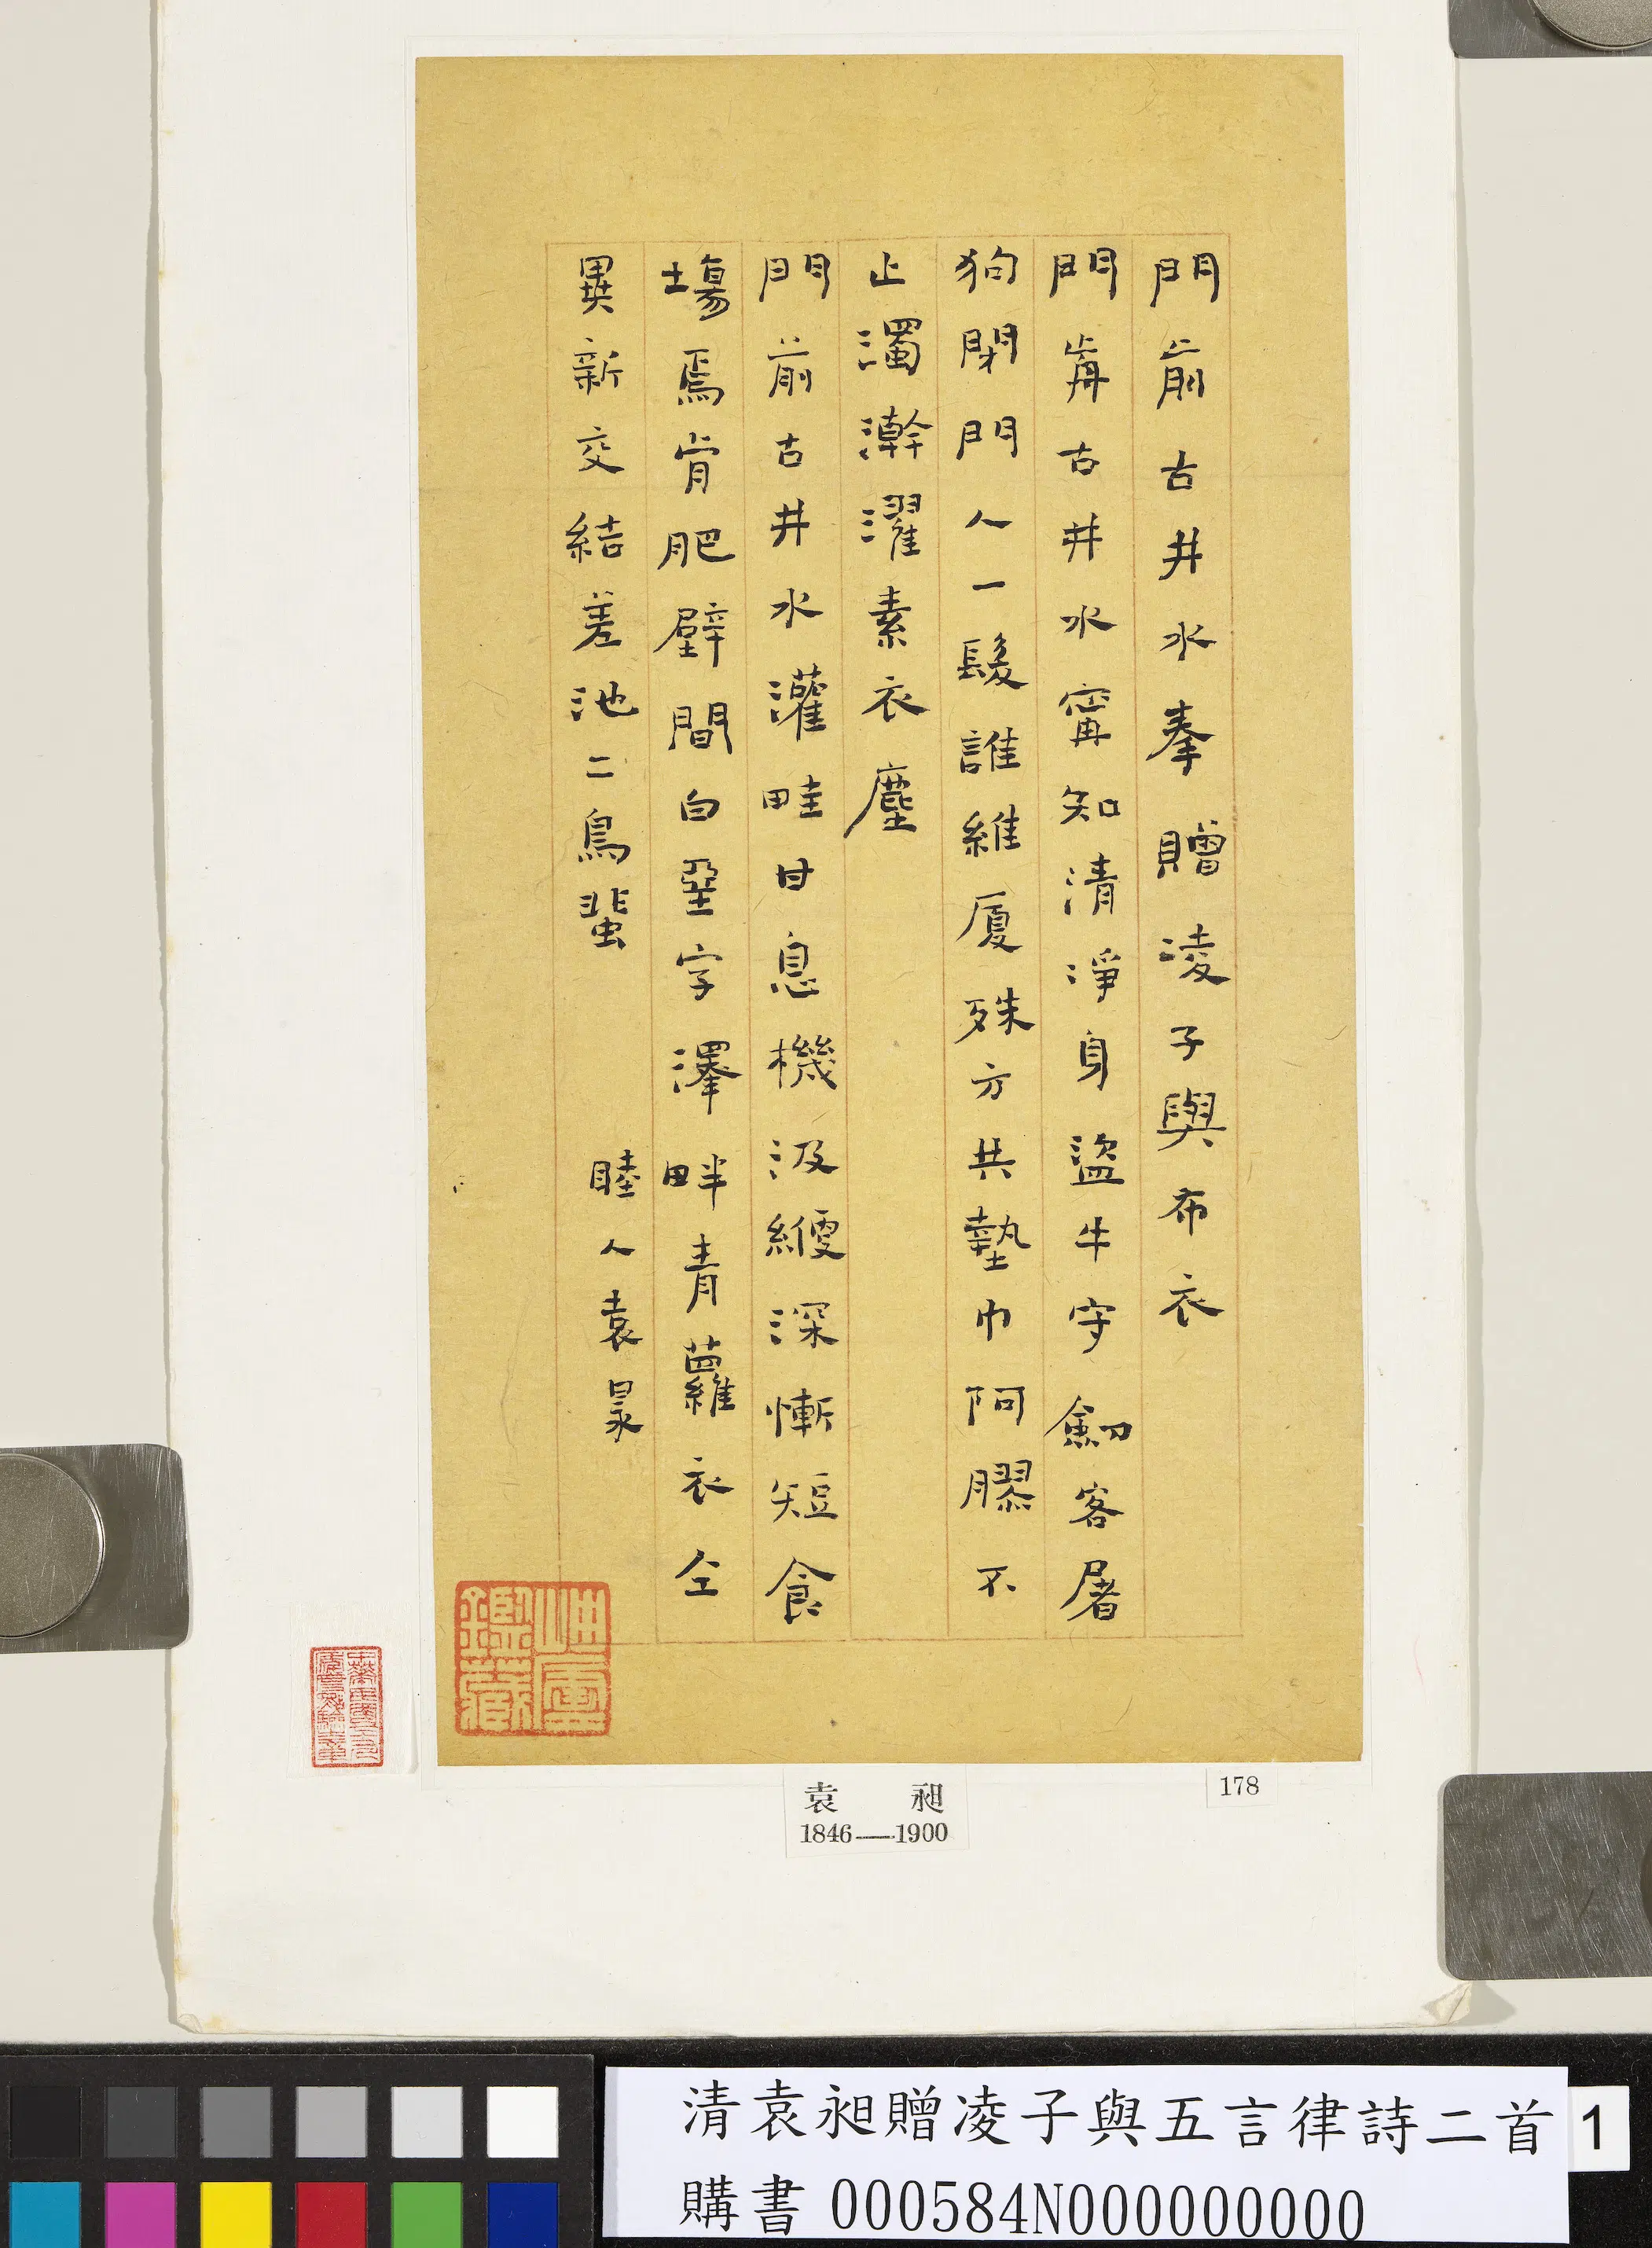 門前古井水奉贈凌子與布衣
門歬古井水寗知清淨身盜牛守劒客屠
狗閉門人一髮誰維厦殊方共墊巾阿膠不
止濁澣濯素衣塵
門前古井水灌畦甘息機汲綆深慚短食
場焉肯肥壁間白堊字澤畔青蘿衣仝
異新交結差池二鳥蜚
睦人袁昶
鑑藏
袁昶
1846—1900
178
清袁昶贈凌子與五言律詩二首
購書 000584N000000000
1